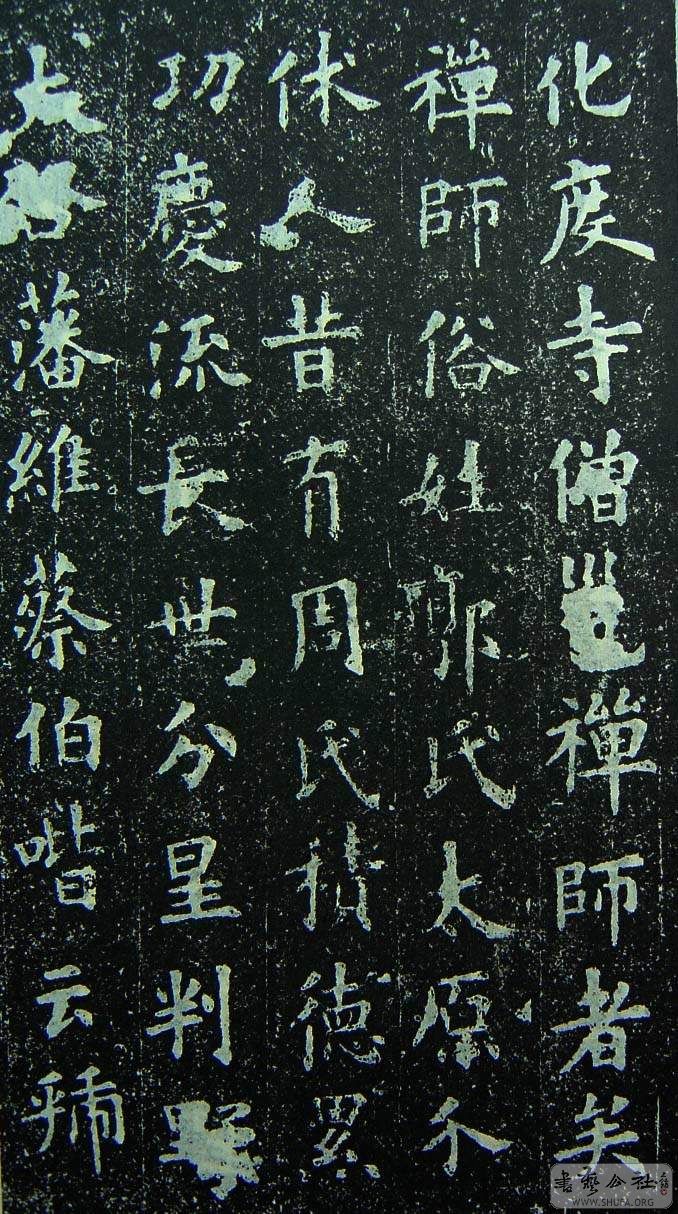 化度寺僧邕禪師者矣
禪師俗姓郭氏大原介
休人昔有周氏積德累
功慶流長世分星判野
藩維蔡伯喈云
书艺公社
WWW.SHUFA.ORG